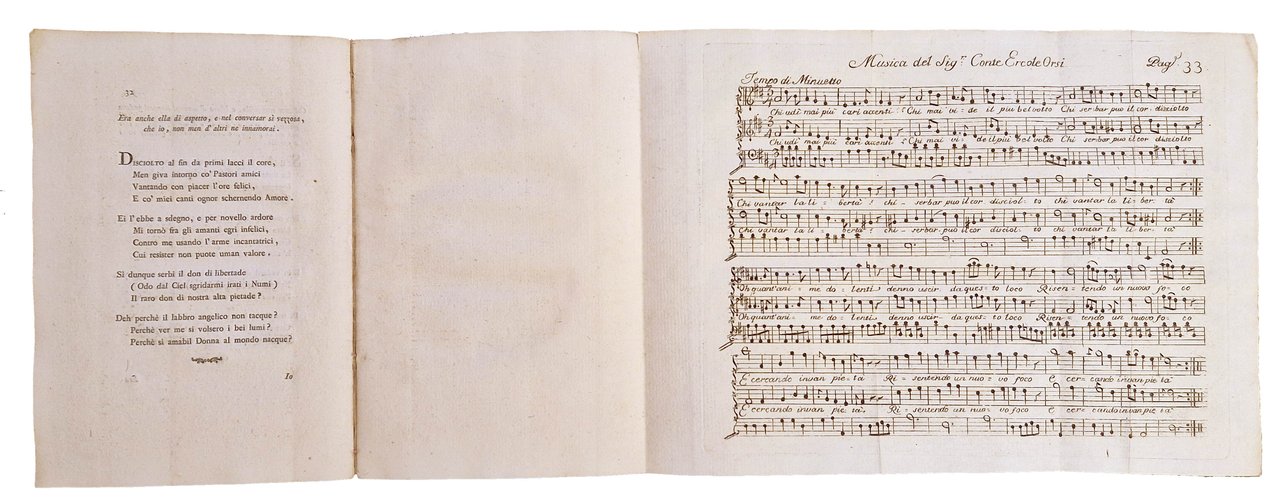 32
Era anche ella di aspetto, e nel conversar sì vezzosa,
che io, non men d'altri ne innamorai.
DISCIOLTO al fin da primi lacci il core,
Men giva intorno co' Pastori amici
Vantando con piacer l'ore felici,
E co' miei canti ognor schernendo Amore.
Ei l'ebbe a sdegno, e per novello ardore
Mi tornò fra gli amanti egri infelici,
Contro me usando l'arme incantatrici,
Cui resister non puote uman valore.
Sì dunque serbi il don di libertade
( Odo dal Ciel sgridarmi irati i Numi )
Il raro don di nostra alta pietade?
Deh perchè il labbro angelico non tacque?
Perchè ver me si volsero i bei lumi?
Perchè sì amabil Donna al mondo nacque?
Io
Musica del Sig.r Conte Ercole Orsi Pag. 33
Tempo di Minuetto
Chi udì mai piu' cari accenti? Chi mai vi- de il piu bel volto Chi serbar puo il cor disciolto
Chi udì mai piu' cari accenti? Chi mai vi- de il piu' bel volto Chi serbar puo il cor disciolto
Chi vantar la li= bertà? chi= serbar puo il cor disciol= to chi vantar la li= ber= tà
Chi vantar la li= bertà? chi= serbar puo il cor disciol= to chi vantar la li= ber= tà
Oh quant'ani= me do= lenti denno uscir da ques= to loco Risen= tendo un nuovo fo= co
Oh quant'ani= me do= lenti denno uscir da ques= to loco Risen= tendo un nuovo fo= co
E cercando invan pie= tà Ri= sentendo un nuo= vo foco E cer= cando invan pie tà
E cercando invan pie tà. Ri= sentendo un nuo= vo foco e cer= cando invan pie tà